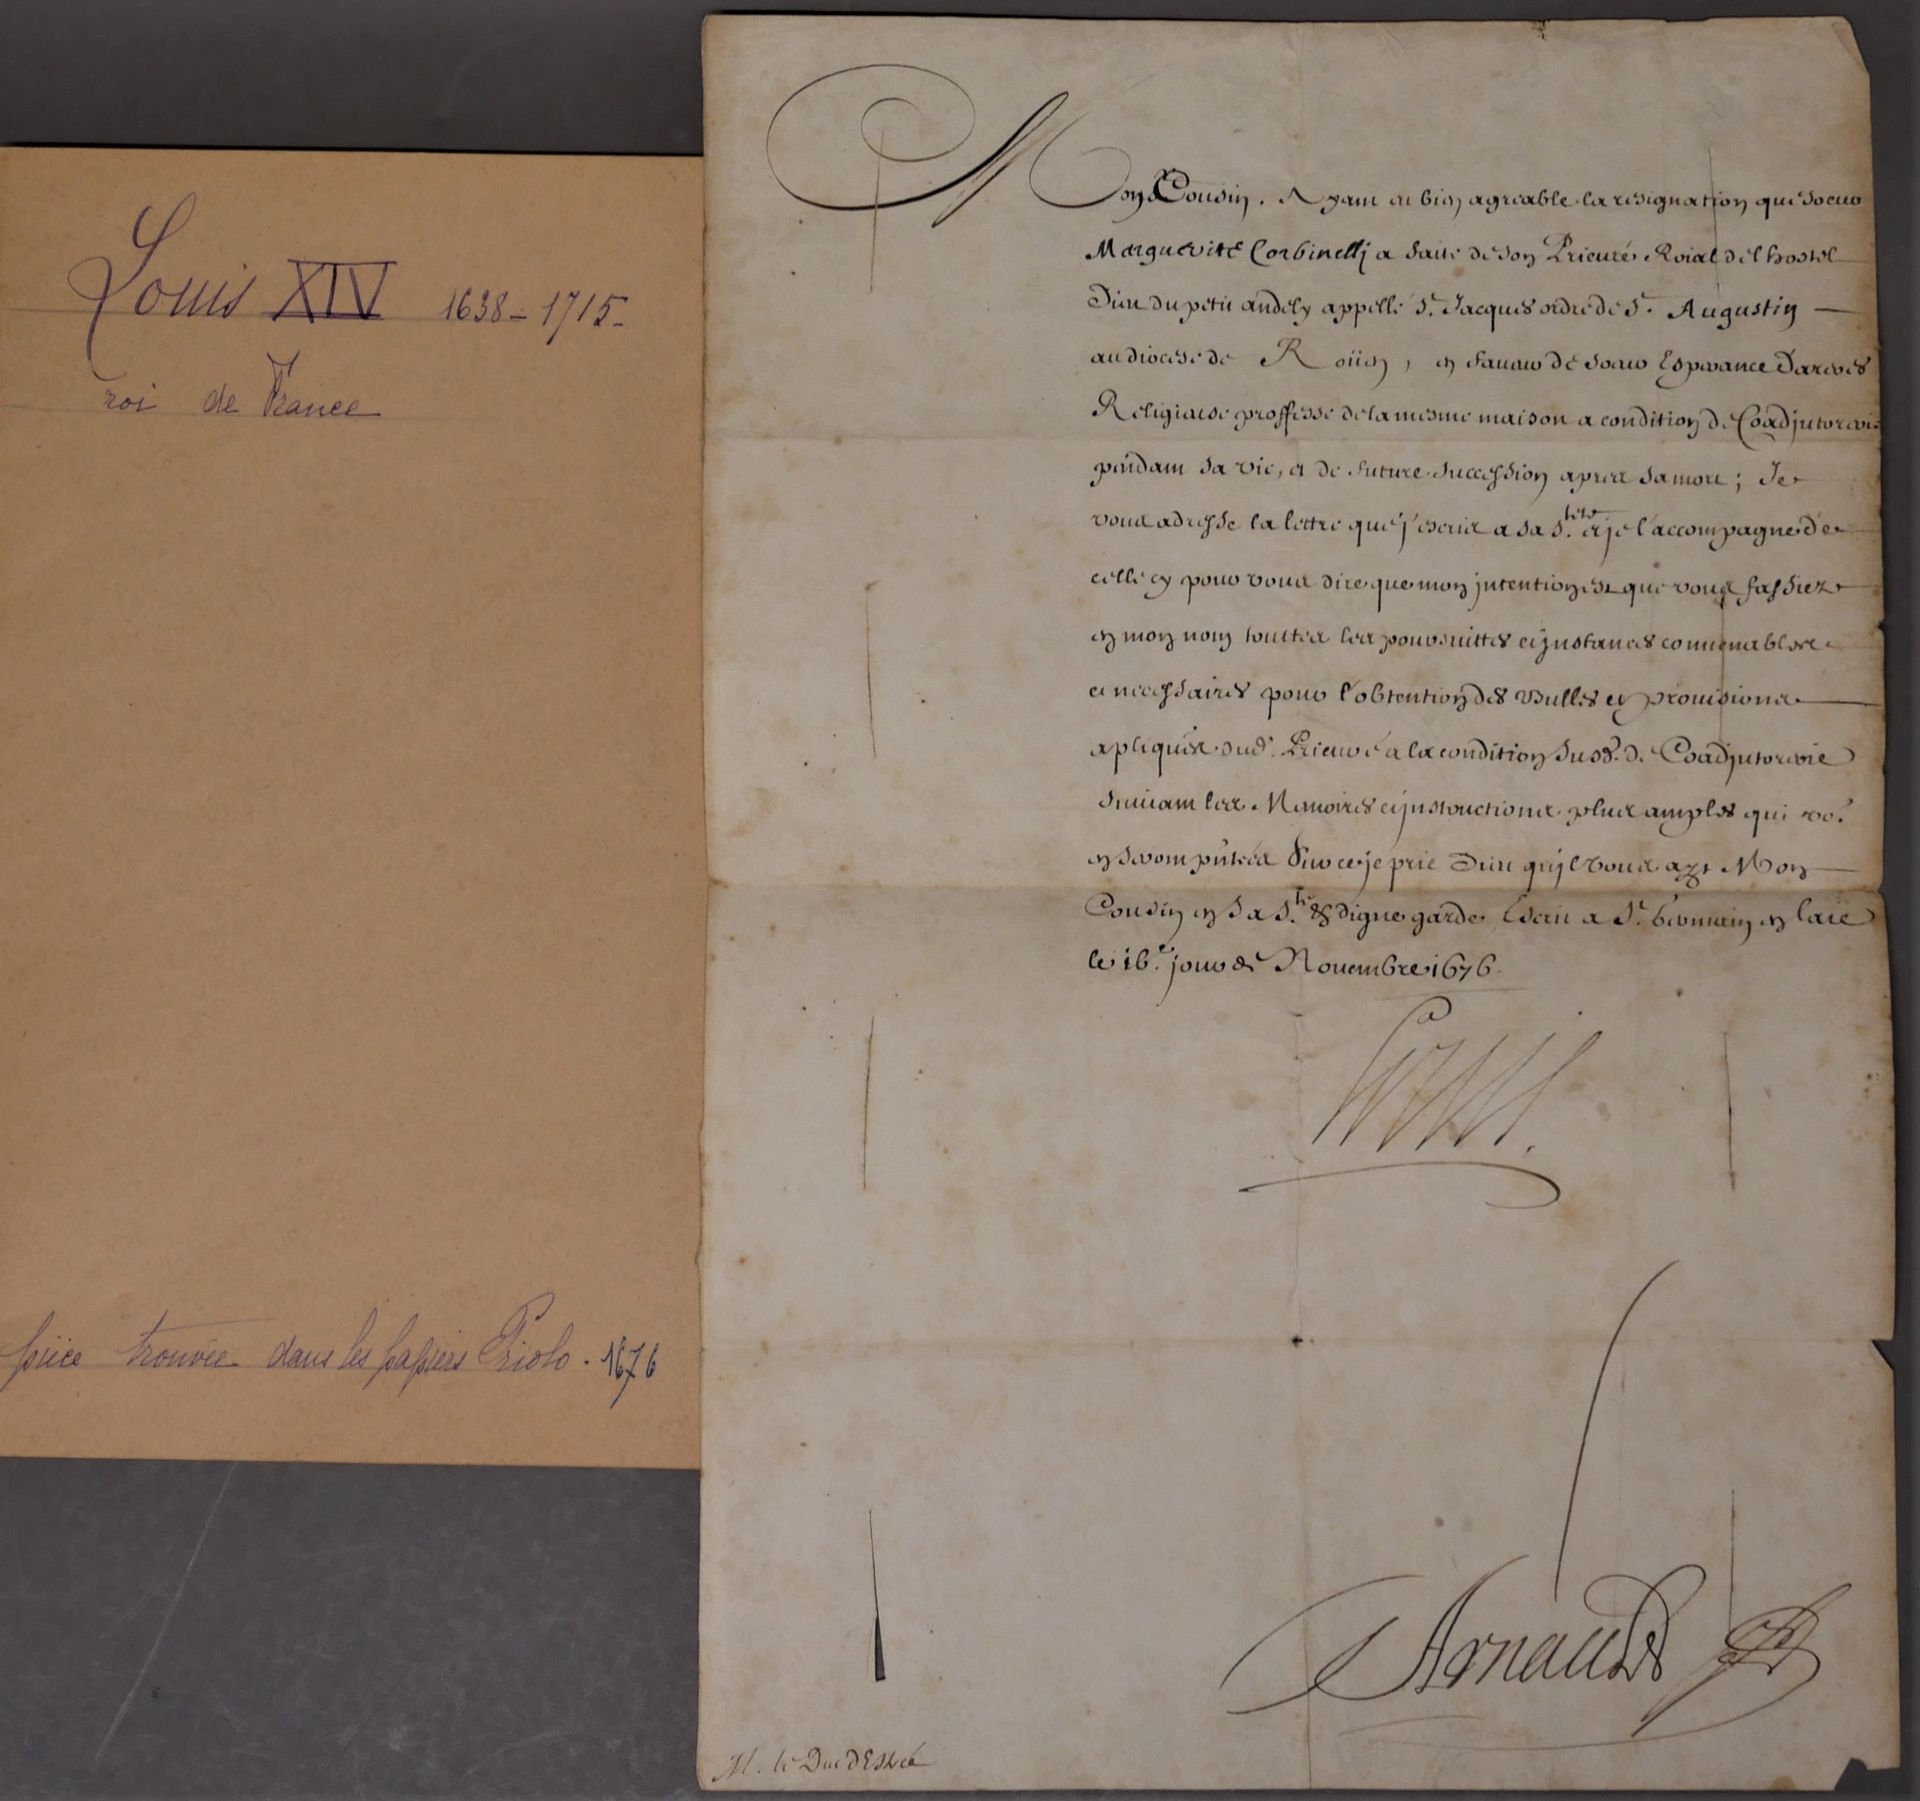 Louis XIV 1638-1715-
roi de France
pièce trouvée dans les papiers Priolo. 1676
Mon Cousin. Ayant eu bien agreable la resignation que soeur
Marguerite Corbinellj a faite de son Prieuré Roial de l'hostel
Dieu du petit andely appellé St. Jacques ordre de St. Augustin
au diocese de Roüen, en faueur de soeur Esperance
Religieuse proffesse de la mesme maison a condition de Coadjutorerie
pendant sa vie, et de future succession apres sa mort; Je
vous adresse la lettre que j'escris a sa S.teté et je l'accompagne de
celle cy pour vous dire que mon jntention est que vous fassiez
en mon nom touttes les poursuittes et jnstances conuenables
et necessaires pour l'obtention des Bulles et prouisions
apliquées dud. Prieuré a la condition susd. de Coadjutorerie
suiuant les Memoires et jnstructions plus amples qui vo.s
en seront Sur ce je prie Dieu qu'jl vous ayt Mon
Cousin en sa S.te & digne garde Escrit a St. Germain en laie
le 16.e jour de Nouembre 1676.
Louis.
Arnauld
M. le Duc d'Estrée